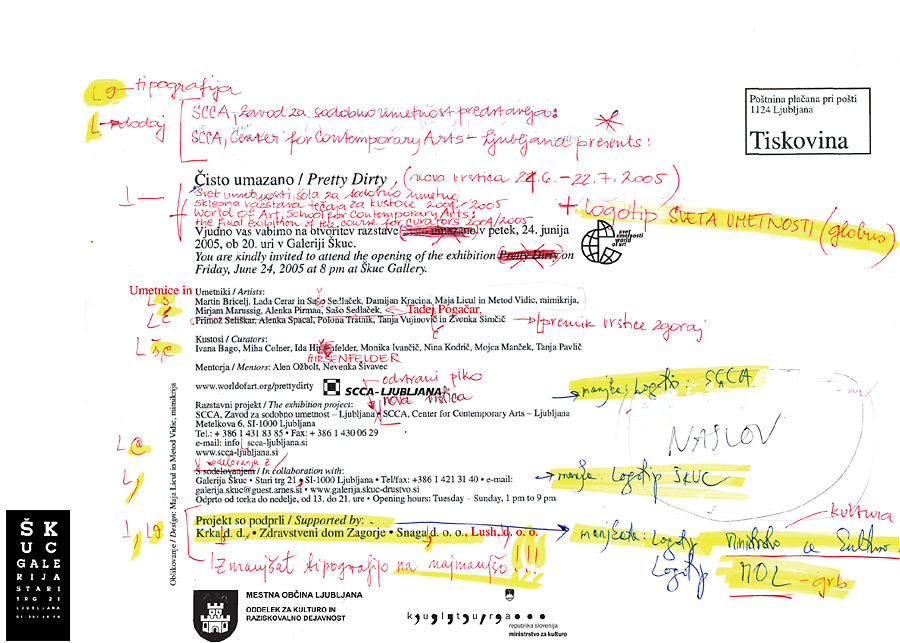 L 9 – tipografija
L → dodaj
SCCA, Zavod za sodobno umetnost predstavlja:
SCCA, Center for Contemporary Arts – Ljubljana presents:
Poštnina plačana pri pošti
1124 Ljubljana
Tiskovina
Čisto umazano / Pretty Dirty, (nova vrstica 24.6. – 22.7.2005)
Svet umetnosti, šola za sodobno umetnost
sklepna razstava tečaja za kustose 2004/2005
World of Art, School for Contemporary Arts:
the final exhibition of the course for curators 2004/2005
+ logotip SVETA UMETNOSTI (globus)
svet
umetnosti
world
of art
Vjudno vas vabimo na otvoritev razstave Čisto umazano, v petek, 24. junija
2005, ob 20. uri v Galeriji Škuc.
You are kindly invited to attend the opening of the exhibition Pretty Dirty on
Friday, June 24, 2005 at 8 pm at Škuc Gallery.
Umetnice in
Umetniki / Artists:
Martin Bricelj, Lada Cerar in Sašo Sedlaček, Damijan Kracina, Maja Licul in Metod Vidic, mimikrija,
Mirjam Marussig, Alenka Pirman, Sašo Sedlaček, Tadej Pogačar,
Primož Seliškar, Alenka Spacal, Polona Tratnik, Tanja Vujinović in Zvonka Simčič
premik vrstice zgoraj
Kustosi / Curators:
Ivana Bago, Miha Colner, Ida Hiršenfelder, Monika Ivančič, Nina Kodrič, Mojca Manček, Tanja Pavlič
HIRŠENFELDER
Mentorja / Mentors: Alen Ožbolt, Nevenka Šivavec
odstrani piko
www.worldofart.org/prettydirty
SCCA-LJUBLJANA
nova vrstica
manjše: Logotip: SCCA
Razstavni projekt / The exhibition project:
SCCA, Zavod za sodobno umetnost – Ljubljana • SCCA, Center for Contemporary Arts – Ljubljana
Metelkova 6, SI-1000 Ljubljana
Tel.: + 386 1 431 83 85 • Fax: + 386 1 430 06 29
e-mail: info scca-ljubljana.si
www.scca-ljubljana.si
NASLOV
V sodelovanju z /
S sodelovanjem / In collaboration with:
Galerija Škuc • Stari trg 21 • SI-1000 Ljubljana • Tel/fax: +386 1 421 31 40 • e-mail:
galerija.skuc@guest.arnes.si • www.galerija.skuc-drustvo.si
Odprto od torka do nedelje, od 13. do 21. ure • Opening hours: Tuesday – Sunday, 1 pm to 9 pm
manjka: Logotip ŠKUC
Projekt so podprli / Supported by:
Krka, d. d., • Zdravstveni dom Zagorje • Snaga, d. o. o., Lush, d. o. o.
kultura
Logotip Ministrstvo za kulturo
Logotip MOL – grb
Zmanjšat tipografijo na najmanjšo!!!
Oblikovanje / Design: Maja Licul in Metod Vidic, mimikrija
ŠK
UC
GALE
RIJA
STARI
TRG 21
LJUBLJANA
MESTNA OBČINA LJUBLJANA
ODDELEK ZA KULTURO IN
RAZISKOVALNO DEJAVNOST
kultura
republika slovenija
ministrstvo za kulturo